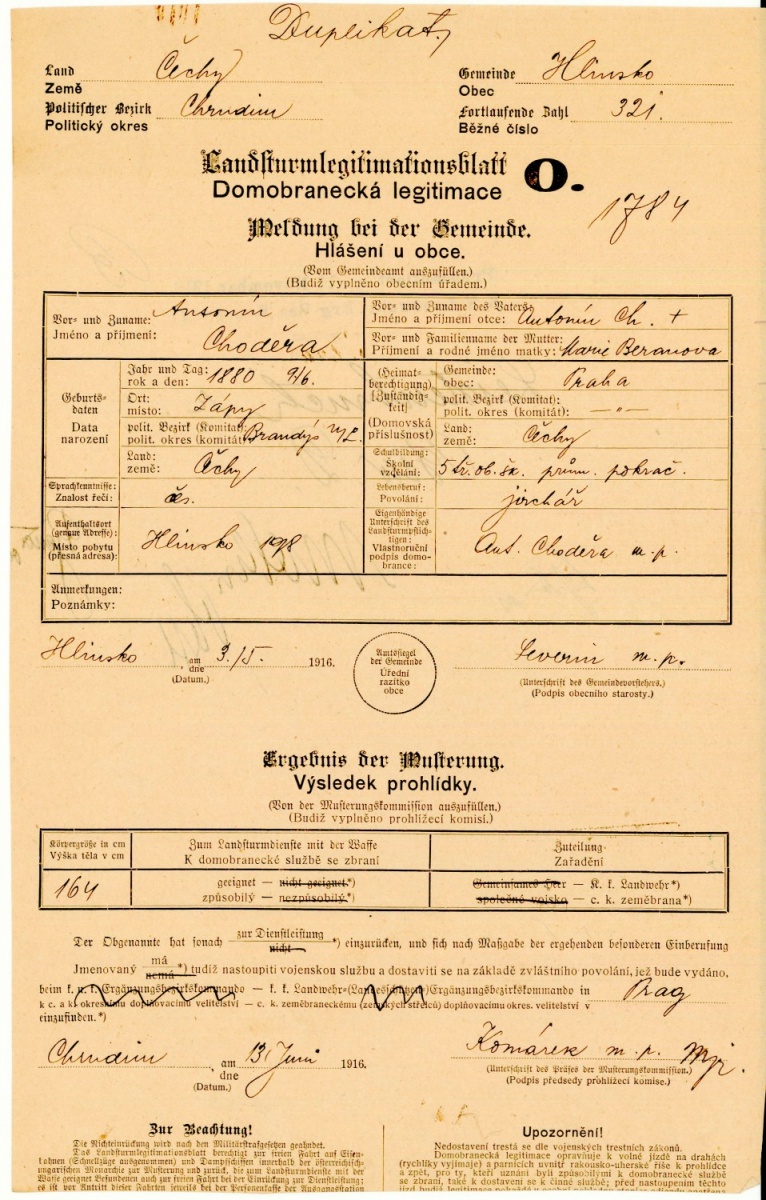 Duplikat
Land Čechy
Země
Politischer Bezirk Chrudim
Politický okres
Gemeinde Hlinsko
Obec
Fortlaufende Zahl 321.
Běžné číslo
Landsturmlegitimationsblatt
Domobranecká legitimace
O.
1784
Meldung bei der Gemeinde.
Hlášení u obce.
(Vom Gemeindeamt auszufüllen.)
(Budiž vyplněno obecním úřadem.)
Vor- und Zuname: Antonín
Jméno a příjmení: Choděra
Vor- und Zuname des Vaters:
Jméno a příjmení otce: Antonín Ch. +
Vor- und Familienname der Mutter:
Příjmení a rodné jméno matky: Marie Beranova
Geburtsdaten
Data narození
Jahr und Tag:
rok a den: 1880 9/6.
Ort:
místo: Zápy
polit. Bezirk (Komitat):
polit. okres (komitát): Brandýs n/L.
Land:
země: Čechy
(Heimatberechtigung)
[Zuständigkeit]
(Domovská příslušnost)
Gemeinde:
obec: Praha
polit. Bezirk (Komitat):
polit. okres (komitát): — „ —
Land:
země: Čechy
Sprachkenntnisse:
Znalost řečí: čes.
Schulbildung:
Školní vzdělání: 5 tř. ob. šk. prům. pokrač.
Lebensberuf:
Povolání: jirchář
Aufenthaltsort
(genaue Adresse):
Místo pobytu
(přesná adresa):
Hlinsko 198
Eigenhändige
Unterschrift des
Landsturmpflichtigen:
Vlastnoruční
podpis domobrance:
Ant. Choděra m. p.
Anmerkungen:
Poznámky:
Hlinsko am
dne 3./5. 1916.
(Datum.)
Amtssiegel
der Gemeinde
Úřední
razítko
obce
Severin m. p.
(Unterschrift des Gemeindevorstehers.)
(Podpis obecního starosty.)
Ergebnis der Musterung.
Výsledek prohlídky.
(Von der Musterungskommission auszufüllen.)
(Budiž vyplněno prohlížecí komisí.)
Körpergröße in cm
Výška těla v cm
164
Zum Landsturmdienste mit der Waffe
K domobranecké službě se zbraní
geeignet — nicht geeignet*)
způsobilý — nezpůsobilý.*)
Zuteilung
Zařadění
Gemeinsames Heer — K. k. Landwehr*)
společné vojsko — c. k. zeměbrana*)
Der Obgenannte hat sonach zur Dienstleistung
nicht *) einzurücken, und sich nach Maßgabe der ergehenden besonderen Einberufung
Jmenovaný má
nemá *) tudíž nastoupiti vojenskou službu a dostaviti se na základě zvláštního povolání, jež bude vydáno,
beim k. u. k. Ergänzungsbezirkskommando — k. k. Landwehr-(Landesschützen-)Ergänzungsbezirkskommando in Prag
k c. a k. okresnímu doplňovacímu velitelství — c. k. zeměbraneckému (zemských střelců) doplňovacímu okres. velitelství v
einzufinden.*)
Chrudim am
dne 13/ Juni 1916.
(Datum.)
Komárek m. p. Mjr.
(Unterschrift des Präses der Musterungskommission.)
(Podpis předsedy prohlížecí komise.)
Zur Beachtung!
Die Nichteinrückung wird nach den Militärstrafgesetzen geahndet.
Das Landsturmlegitimationsblatt berechtigt zur freien Fahrt auf Eisenbahnen (Schnellzüge ausgenommen) und Dampfschiffen innerhalb der österreichisch-
ungarischen Monarchie zur Musterung und zurück, die zum Landsturmdienste mit der
Waffe geeignet Befundenen auch zur freien Fahrt bei der Einrückung zur Dienstleistung;
es ist vor Antritt dieser Fahrten jeweils bei der Personenkasse der Ausgangsstation
Upozornění!
Nedostavení trestá se dle vojenských trestních zákonů.
Domobranecká legitimace opravňuje k volné jízdě na drahách
(rychlíky vyjímaje) a parnících uvnitř rakousko-uherské říše k prohlídce
a zpět, pro ty, kteří uznáni byli způsobilými k domobranecké službě
se zbraní, také k dostavení se k činné službě; před nastoupením těchto